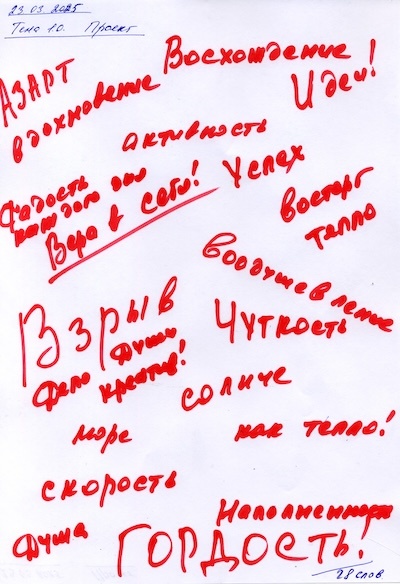 23.03.2025
Тема 10. Проект
АЗАРТ
Восхождение
Идеи!
вдохновение
активность
Успех
Радость
каждого дня
Вера в себя!
восторг
тепло
Воодушевление
Взрыв
Чуткость
Дело Души
креатив!
солнце
море
как тепло!
скорость
Наполненность
Душа
ГОРДОСТЬ!
28 слов